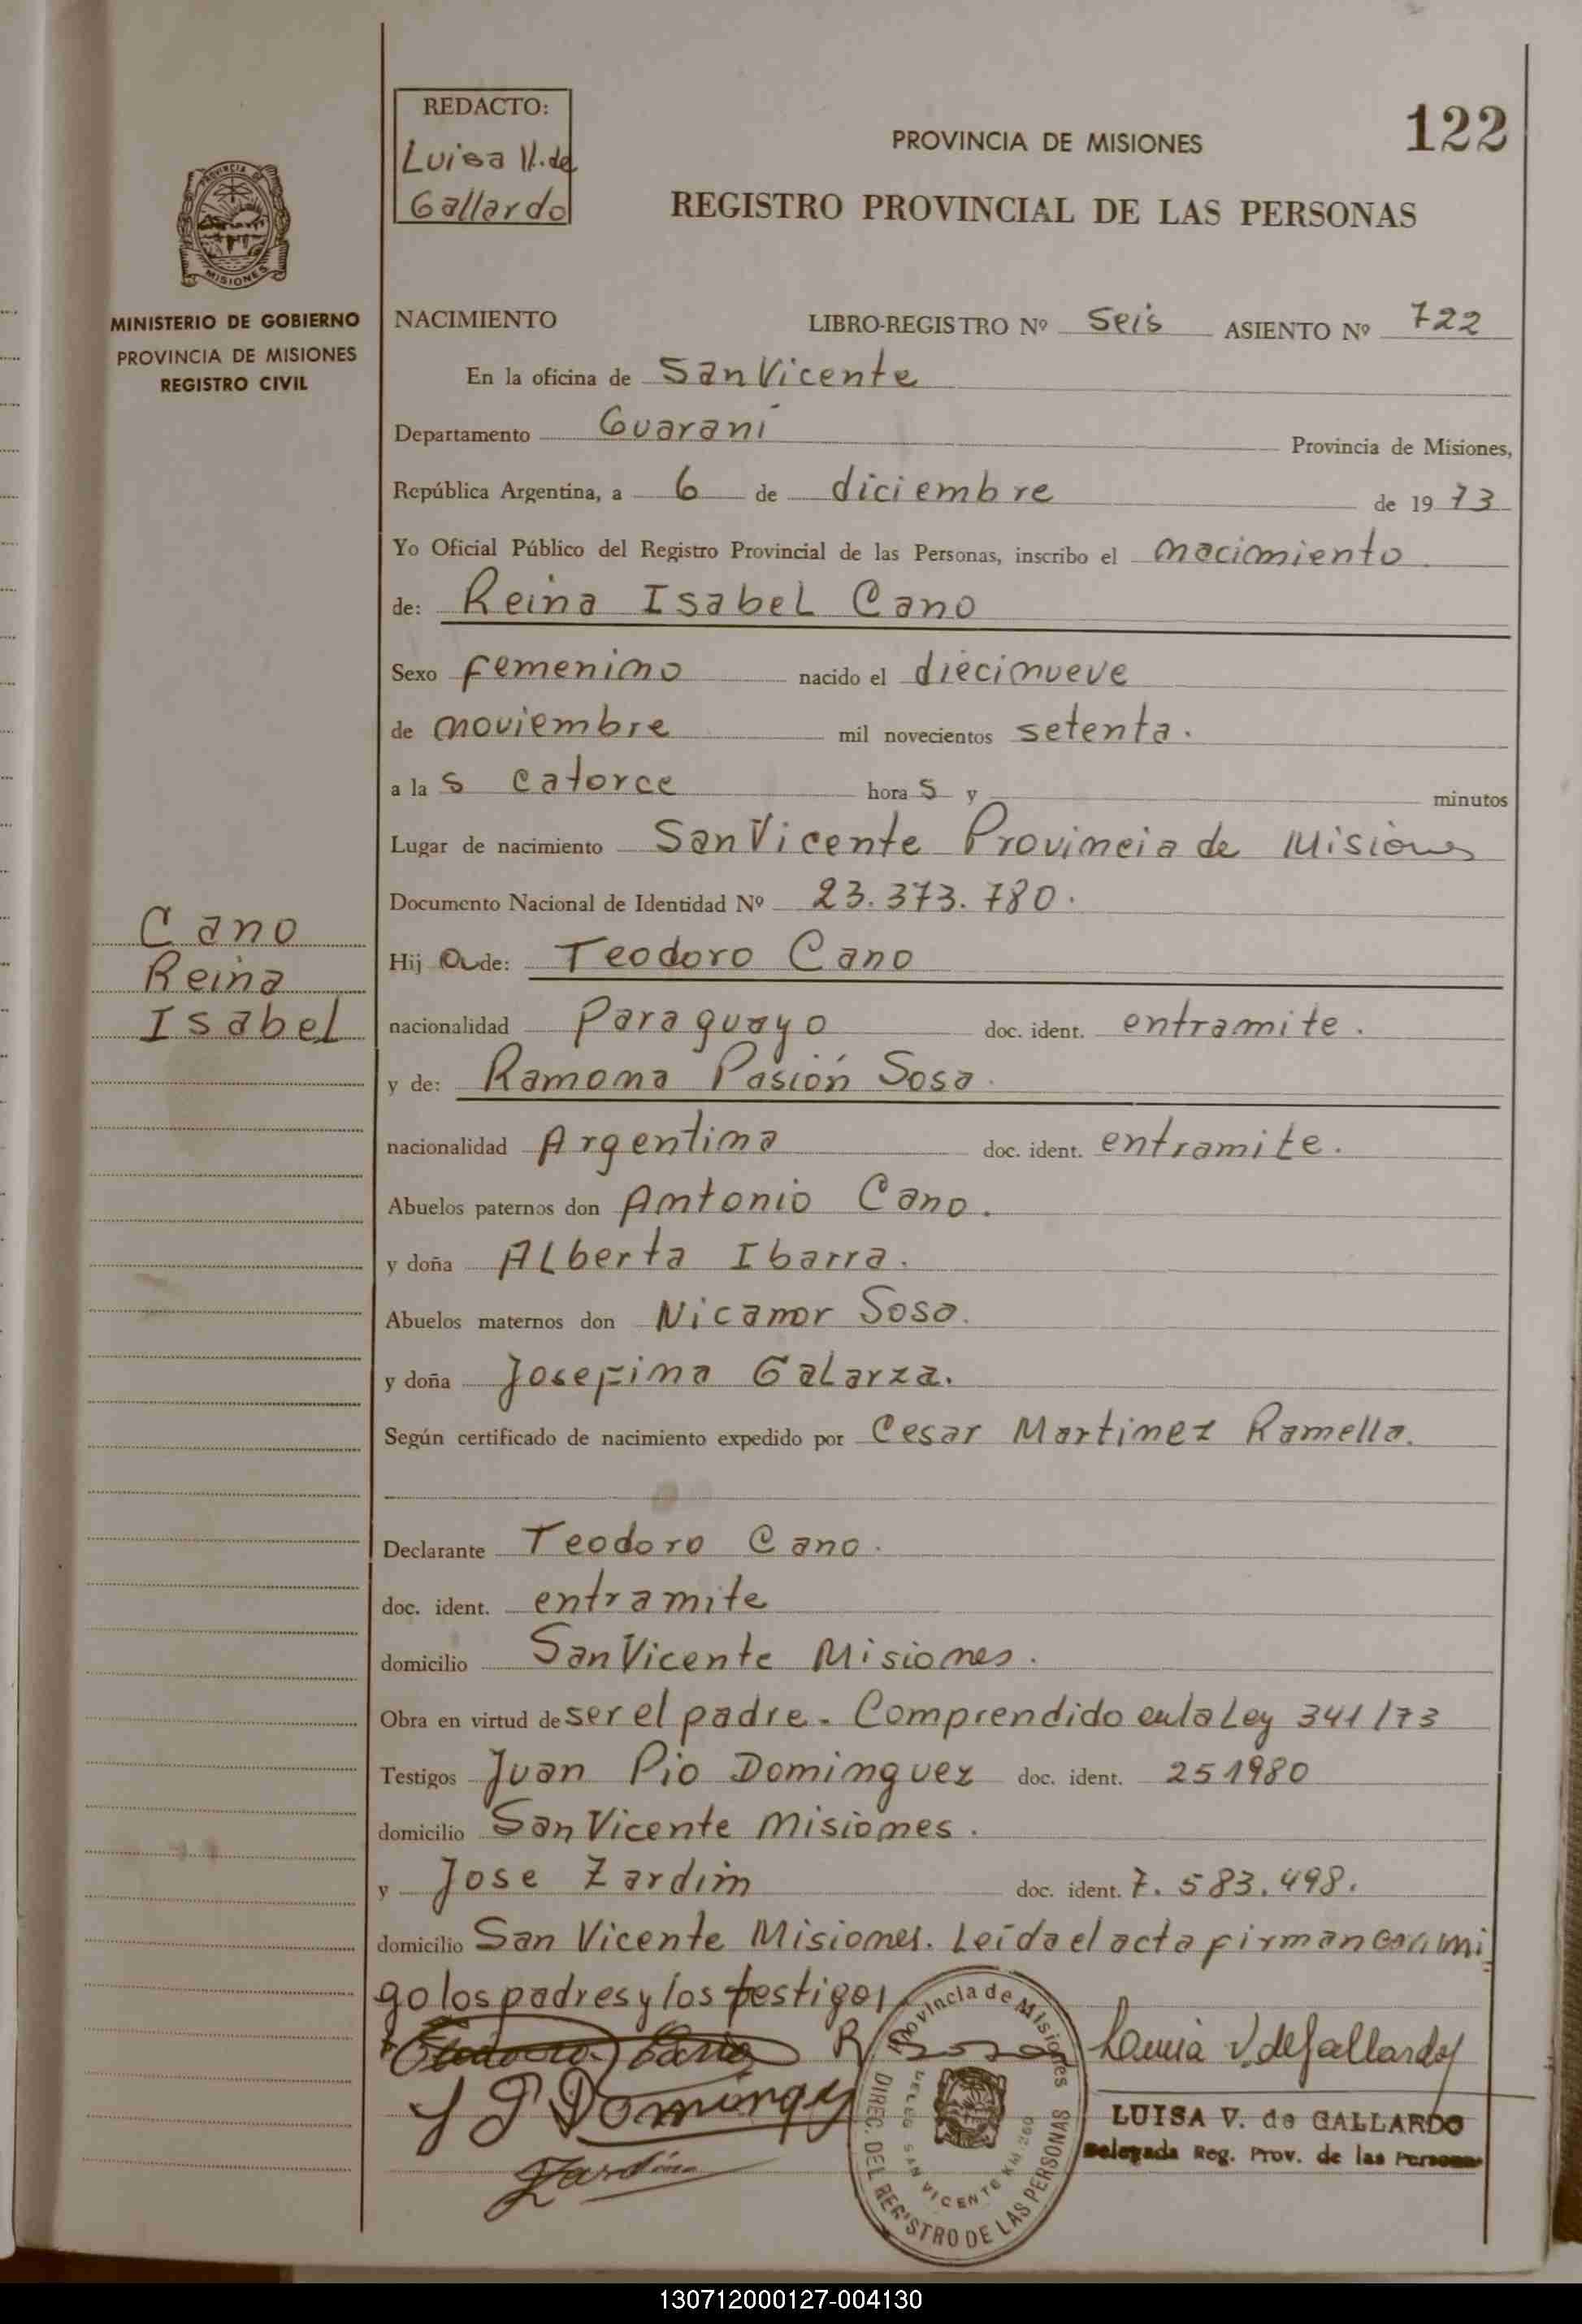 REDACTO:
Luisa V. de
Gallardo
PROVINCIA DE MISIONES
122
REGISTRO PROVINCIAL DE LAS PERSONAS
PROVINCIA DE
MISIONES
MINISTERIO DE GOBIERNO
PROVINCIA DE MISIONES
REGISTRO CIVIL
NACIMIENTO LIBRO-REGISTRO Nº Seis ASIENTO Nº 722
En la oficina de San Vicente
Departamento Guaraní Provincia de Misiones,
República Argentina, a 6 de diciembre de 1973
Yo Oficial Público del Registro Provincial de las Personas, inscribo el nacimiento
de: Reina Isabel Cano
Sexo femenino nacido el diecinueve
de noviembre mil novecientos setenta.
a las catorce horas y minutos
Lugar de nacimiento San Vicente Provincia de Misiones
Documento Nacional de Identidad Nº 23.373.780.
Cano
Reina
Isabel
Hija de: Teodoro Cano
nacionalidad Paraguayo doc. ident. entramite.
y de: Ramona Pasión Sosa.
nacionalidad Argentina doc. ident. entramite.
Abuelos paternos don Antonio Cano.
y doña Alberta Ibarra.
Abuelos maternos don Nicanor Sosa.
y doña Josefina Galarza.
Según certificado de nacimiento expedido por Cesar Martinez Ramella.
Declarante Teodoro Cano.
doc. ident. entramite
domicilio San Vicente Misiones.
Obra en virtud de ser el padre. Comprendido en la Ley 341/73
Testigos Juan Pio Dominguez doc. ident. 251980
domicilio San Vicente Misiones.
y Jose Zardin doc. ident. 7.583.498.
domicilio San Vicente Misiones. Leída el acta firman conmi
go los padres y los testigos
Teodoro Cano R Sosa Luisa V. de Gallardo
J P Dominguez
Zardin
Provincia de Misiones
DIREC. DEL REGISTRO DE LAS PERSONAS
DELEG. SAN VICENTE KM 260
LUISA V. de GALLARDO
Delegada Reg. Prov. de las Personas
130712000127-004130